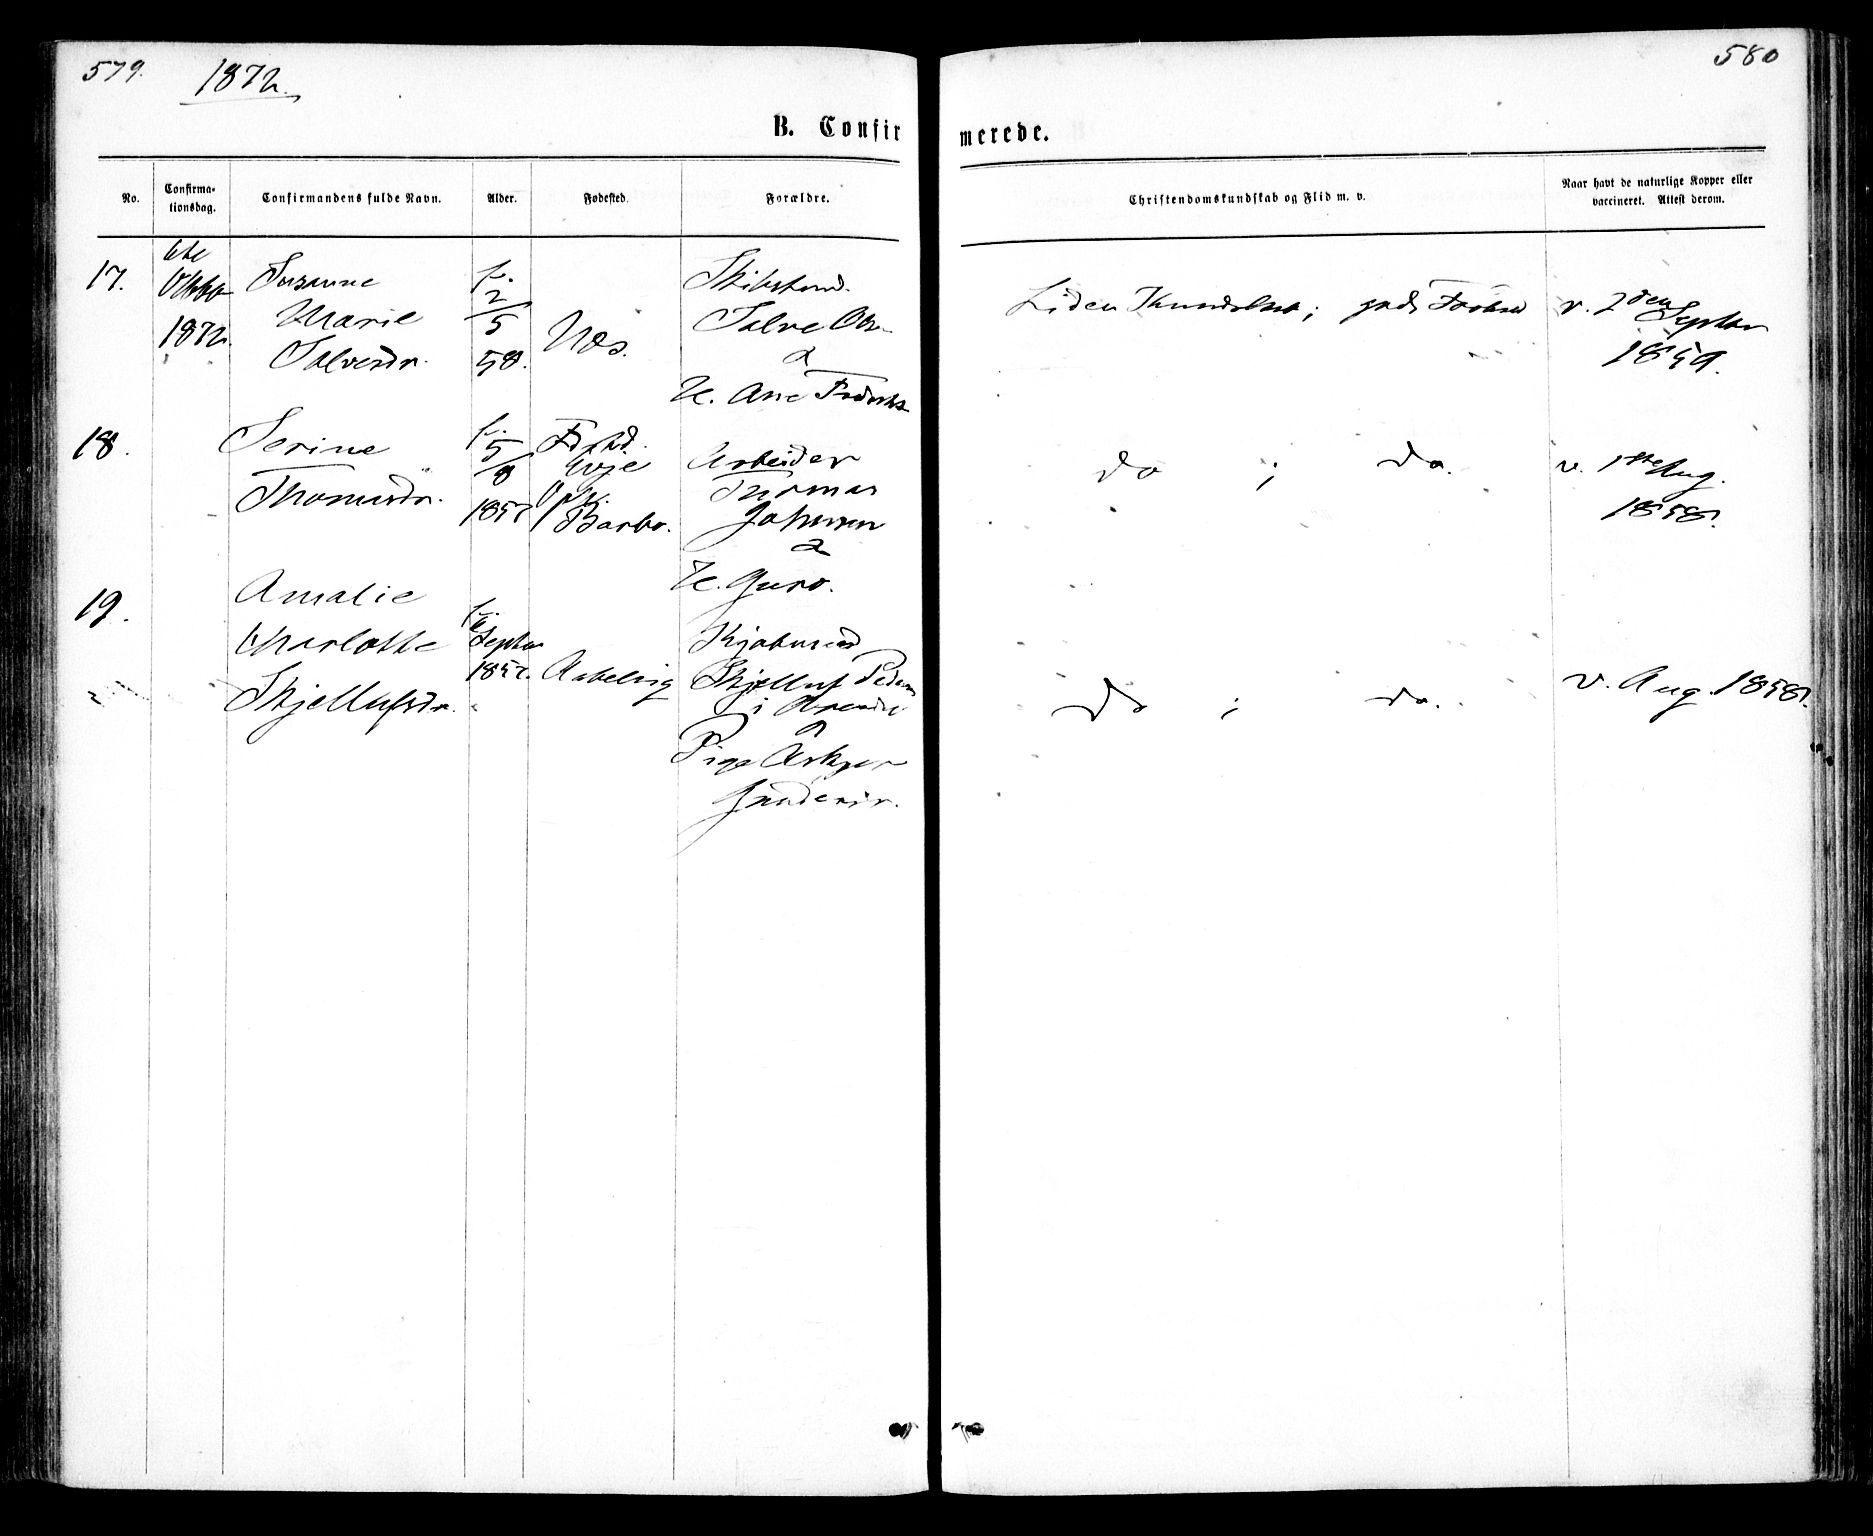 579.
1872.
580
B. Confirmerede.
No.
Confirma-
tionsdag.
Confirmandens fulde Navn.
Alder.
Fødested.
Forældre.
Christendomskundskab og Flid m. v.
Naar havt de naturlige Kopper eller
vaccineret. Attest derom.
17.
6te
Oktbr
1872.
Susanne
Marie
Salvesdr.
f.
2/5
58.
Næs.
Salve
&
H. Ane
Liden Kundskab; god
v. 2den
Septbr
1859.
18.
Serine
Thomasdr.
f.
5/8
1857
Evje
Barbo.
Arbeider
Thomas
Johnsen
&
H. Guro.
do ; do.
v. 1ste Aug.
1858.
19.
Amalie
Charlotte
Skjellufsdr.
f. i
Septbr
1857.
Kjøbmand
Skjelluf Peders
i Arendal
&
Pige
do ; do.
v. Aug. 1858.